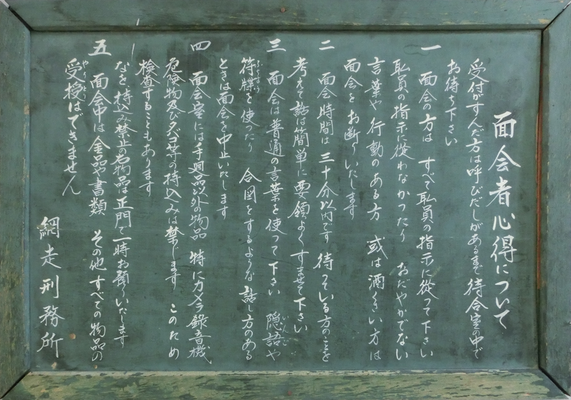 面会者心得について
受付すんだ方は呼びだしがあるまで待合室の中で
お待ち下さい
一 面会の方は すべて職員の指示に従って下さい
職員の指示に従わなかったり おだやかでない
言葉や行動のある方 或は酒くさい方は
面会をお断りいたします
二 面会時間は三十分以内です 待っている方のことを
考えて話は簡単に要領よくすませて下さい
三 面会は普通の言葉を使って下さい 隠語や
符牒を使ったり 合図をするような話し方のある
ときは面会を中止いたします
四 面会室には手廻品以外の物品 特にカメラ録音機、
危険物及び火気等の持込みは禁じます このため
検査することもあります
なお持込み禁止の物品は正門で一時お預りいたします
五 面会中は金品や書類 その他すべての物品の
受授はできません
網走刑務所